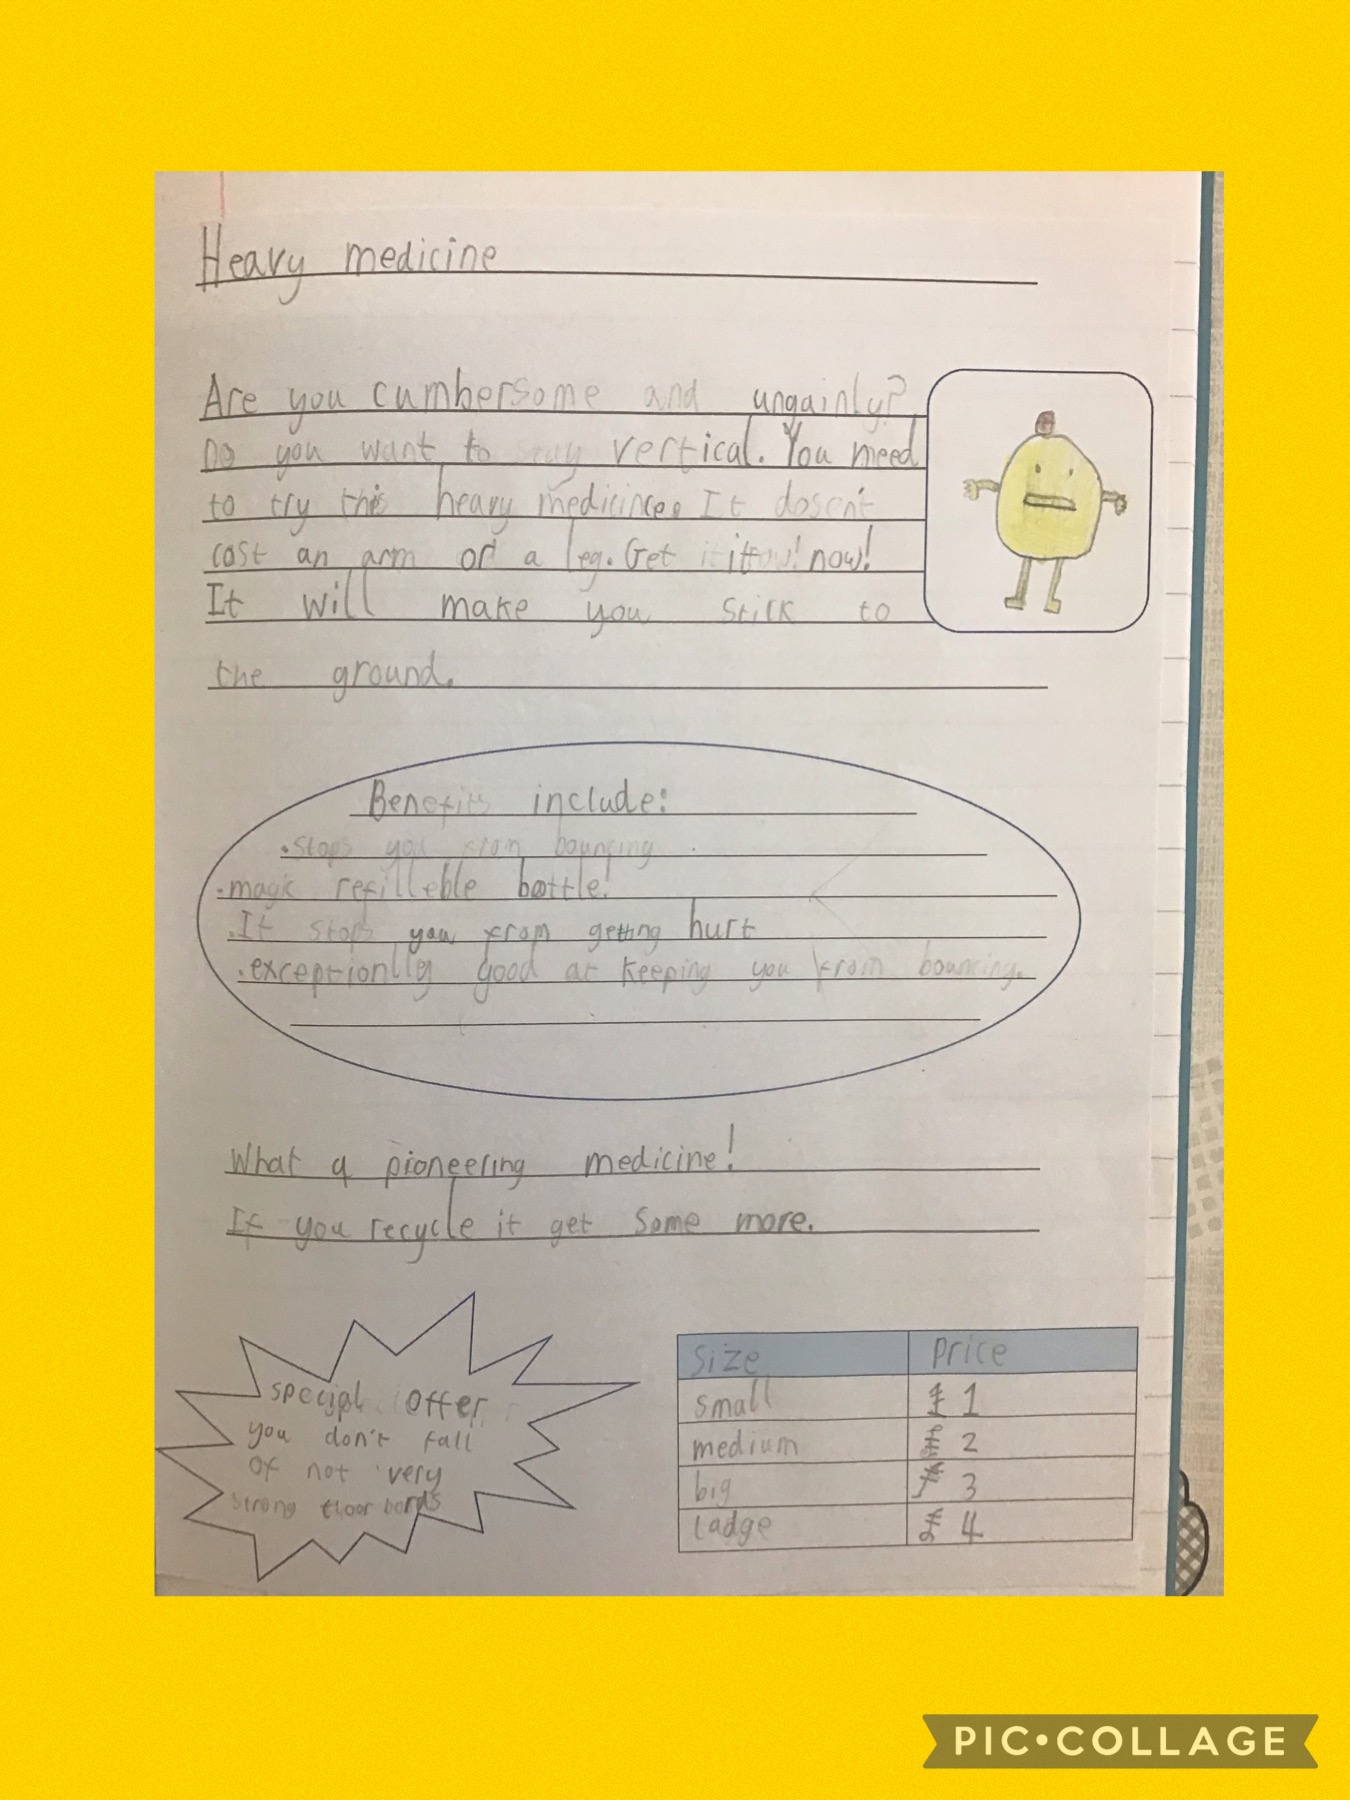 Heavy medicine
Are you cumbersome and ungainly?
Do you want to stay vertical. You need
to try this heavy medicince. It dosen't
cost an arm or a leg. Get it now!
It will make you stick to
the ground.
Benefits include:
• Stops you from bouncing
• magic refilleble bottle!
• It stops you from getting hurt
• exceptionlly good at keeping you from bouncing.
What a pioneering medicine!
If you recycle it get some more.
special offer
you don't fall
of not very
strong floor bords
Size Price
small £ 1
medium £ 2
big £ 3
ladge £ 4
PIC•COLLAGE